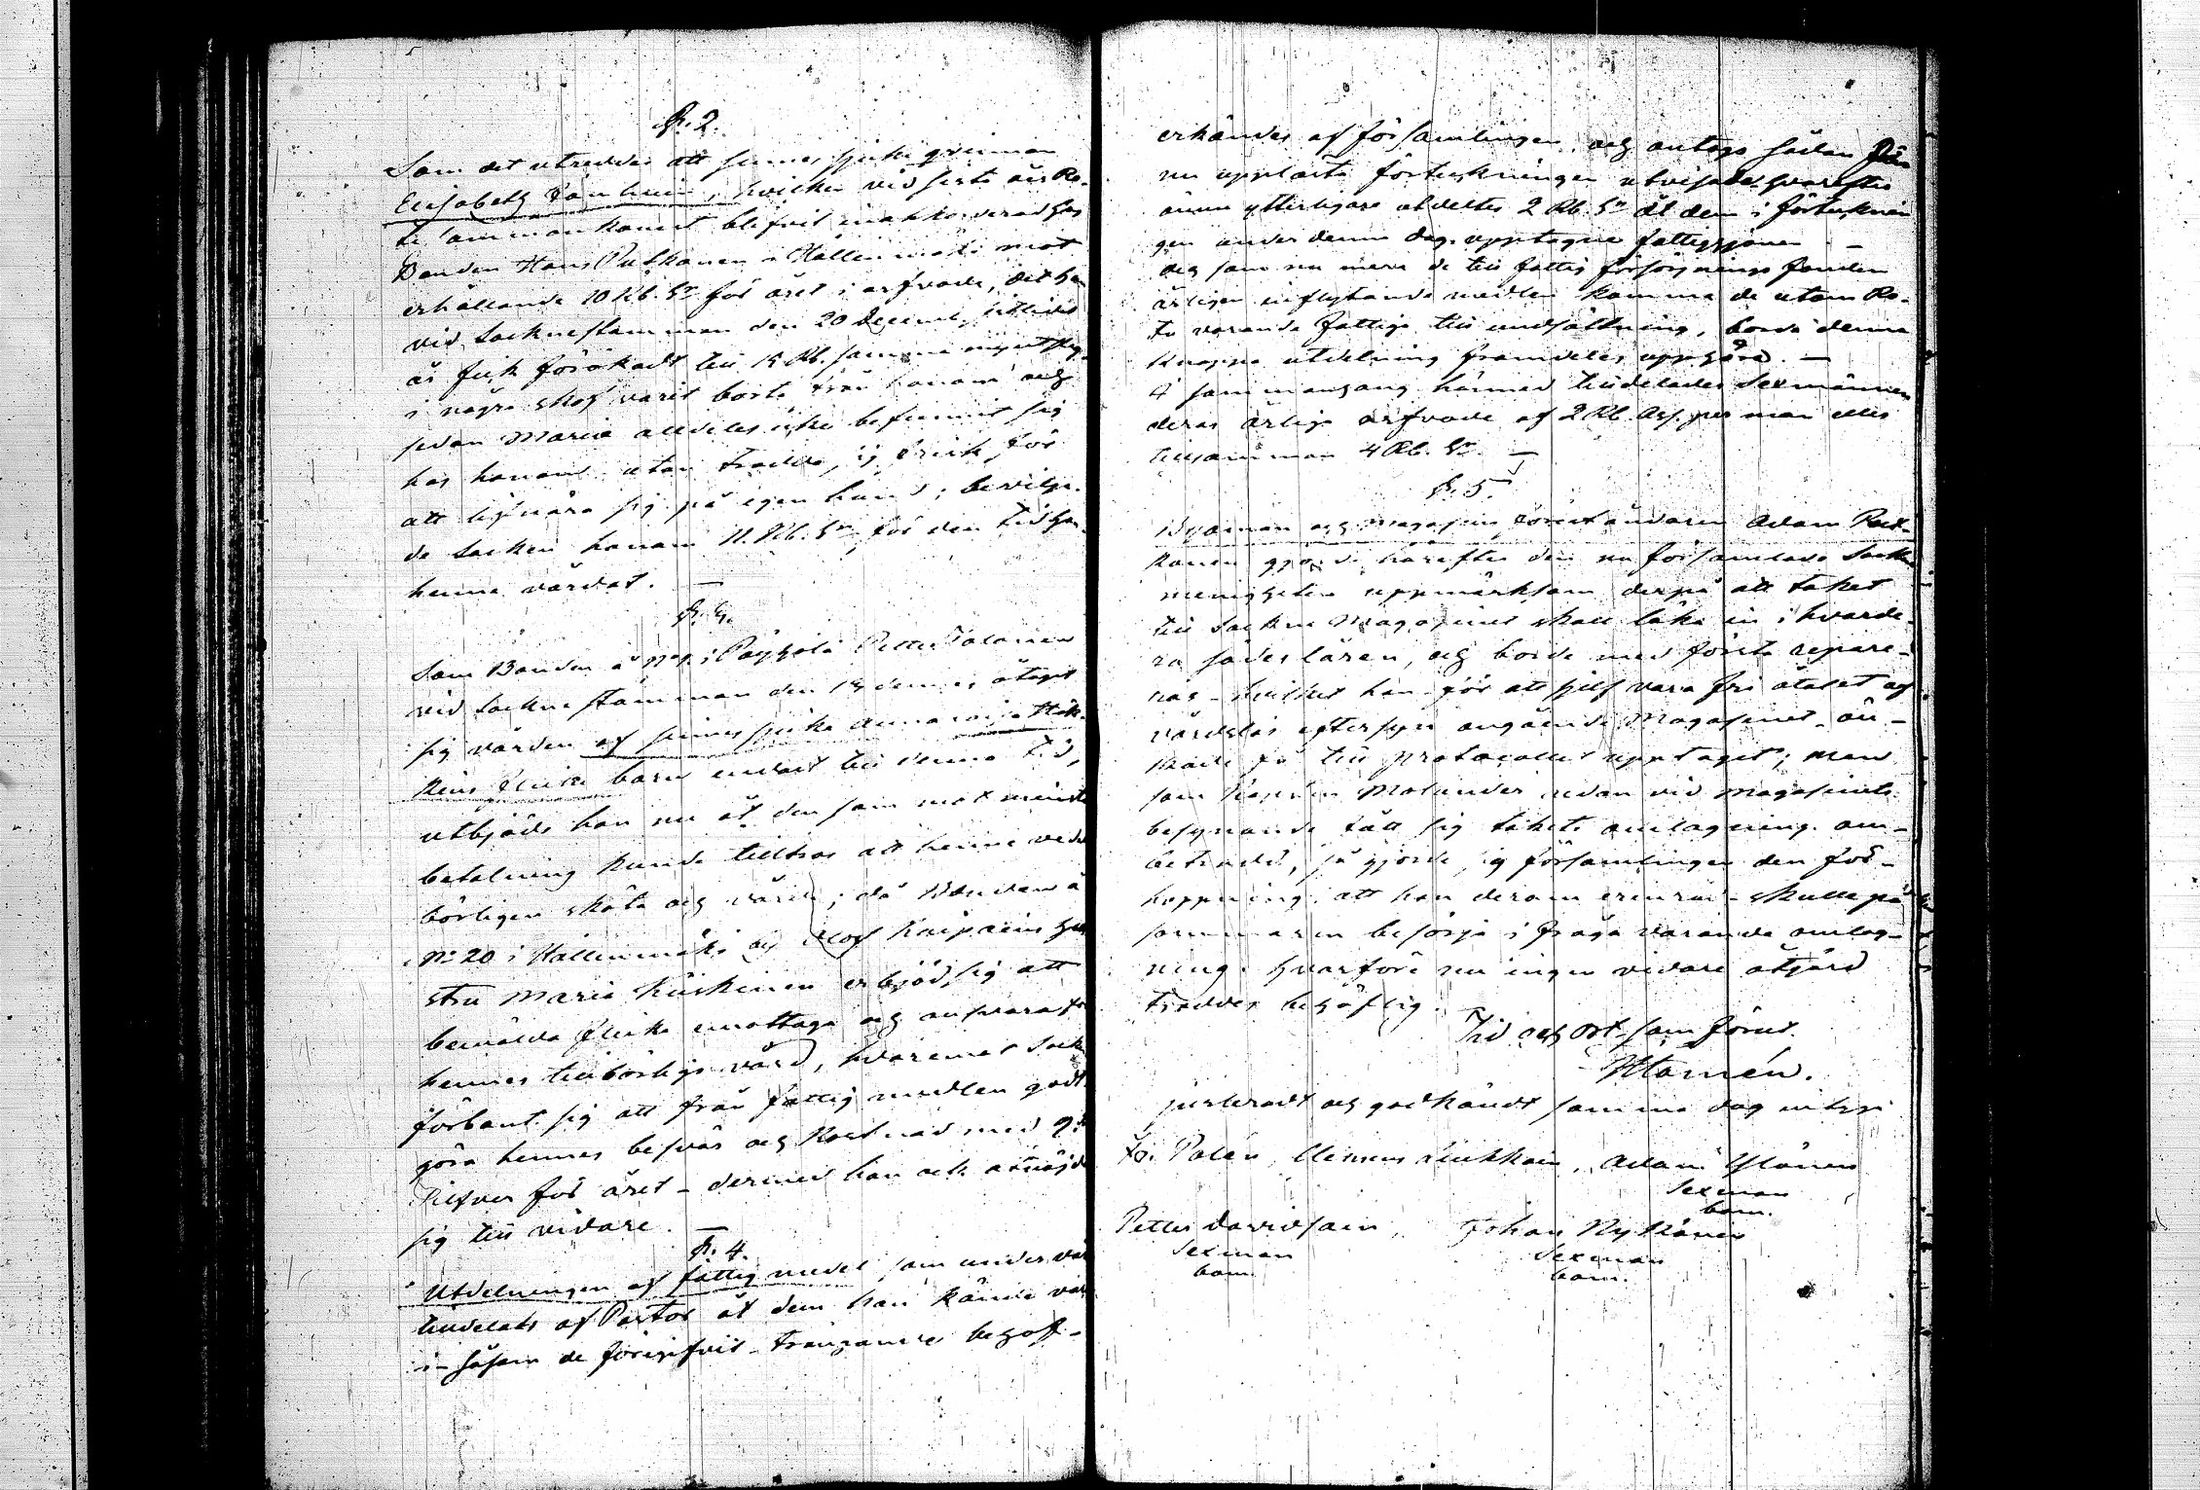 §. 2.
Som det utreddes att sinnessjuke qvinnan
Elisabeth, hvilken vid sista års Ro-
te sammankomst blifvit inackorderad hos
Bonden Hans Puhkonen i Hällinmäki mot
erhållande 10 Rb. Sr för året i arfvode, det han
vid Sockenstämman den 20 December sistlidit
år fick förökadt till 15 Rb. samma
i några skof varit borta från honom och
sedan Maria alldeles icke befunnit sig
hos honom utan trädde, försök, för
att lifnära sig på egen hand; bevilja-
de Socken honom 11. Rb. Sr, för den tid han
henne vårdat. —
§. 3.
Som Bonden å No 9 i Pöyhölä Petter Jalanen
vid Sockenstämman den 15 dennes åtagit
sig vården af sinnessjuka Anna
barn endast till denna tid,
utbjöds hon nu åt den som mot minsta
betalning kunde tilltros att henne veder
börligen sköta och vårda; då Bonden å
No 20 i Hällinmäki och Olof Kaipains hu
stru Maria Kiiskinen erbjöd sig att
bemälda flicka emottaga och ansvara för
hennes tillbörliga vård, hvaremot Sock
förbant sig att från fattig medlen godt
göra hennes besvär och kostnad med 9
Silfver för året – dermed hon ock åtnöjde
sig till vidare. —
§. 4.
Utdelningen af fattig medel som under
tilldelats af Pastor åt dem han kände va
i – såsom de föregifvit – trängande behof –
erkändes af församlingen, och antogs sådan
nu upplästa förteckningen utvisade hvarefter
ännu ytterligare utdeltes 2 Rb. Sr åt dem i förtecknin
gen under denne dag upptagne fattighjonen –
och som nu mera de till fattig försörjnings fonden
årligen inflytande medlen komma de utom Ro-
te varande fattige till undsättning, borde denne
knappa utdelning framdeles upphöra. —
I sammanhang härmed tilldelades Sexmännen
deras årliga arfvode af 2 Rb. Ass. per man eller
tillsamman 4 Rb. Sr. —
§. 5.
Byaman och Magasins föreståndaren Adam
gjorde härefter den nu församlade Sock
menigheten uppmärksam derpå att taket
till Sockne Magasinet skall läka in i hvarde-
ra sädes lären, och borde med första repare-
ras – hvilket han – för att sjelf vara fri åtalet af
vårdslös eftersyn angående Magasinet – ön-
skade få till protocollet upptaget; men
som Molander redan vid Magasinets
besynande låtit sig takets omlagning om-
betrodd, så gjorde sig församlingen den för-
hoppning, att han derom erinrad – skulle på
sommaren besörja i fråga varande omlag-
ning. hvarföre nu ingen vidare åtgärd
träddes behöflig.
Tid och Ort, som förut.
Justeradt och godkändt samma dag intyga
Palén, Adam Ylönen
Sexman
bom.
Petter Davidsain, Johan Nykänen
Sexman Sexman
bom. bom.